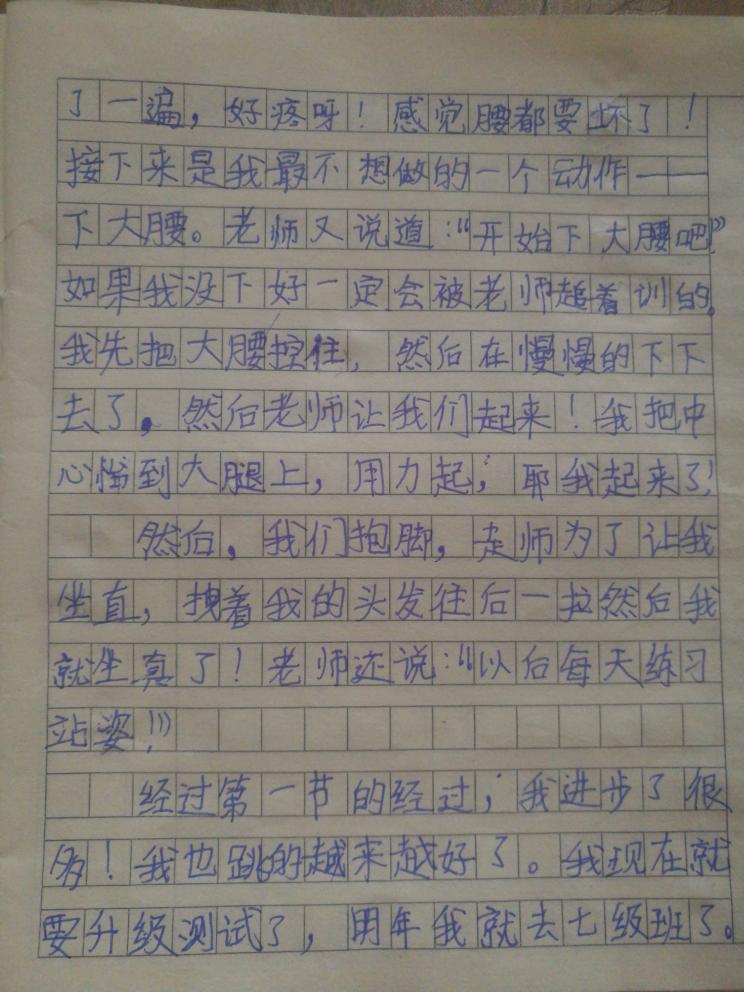 了一遍，好疼呀！感觉腰都要坏了！
接下来是我最不想做的一个动作——
下大腰。老师又说道："开始下大腰吧！"
如果我没下好一定会被老师趁着训的。
我先把大腰控住，然后在慢慢的下下
去了。然后老师让我们起来！我把中
心挪到大腿上，用力起，耶我起来了！
然后，我们抱脚，老师为了让我
坐直，拽着我的头发往后一拉然后我
就坐真了！老师还说："以后每天练习
站姿！"
经过第一节的经过，我进步了很
多！我也跳的越来越好了。我现在就
要升级测试了，明年我就去七级班了。